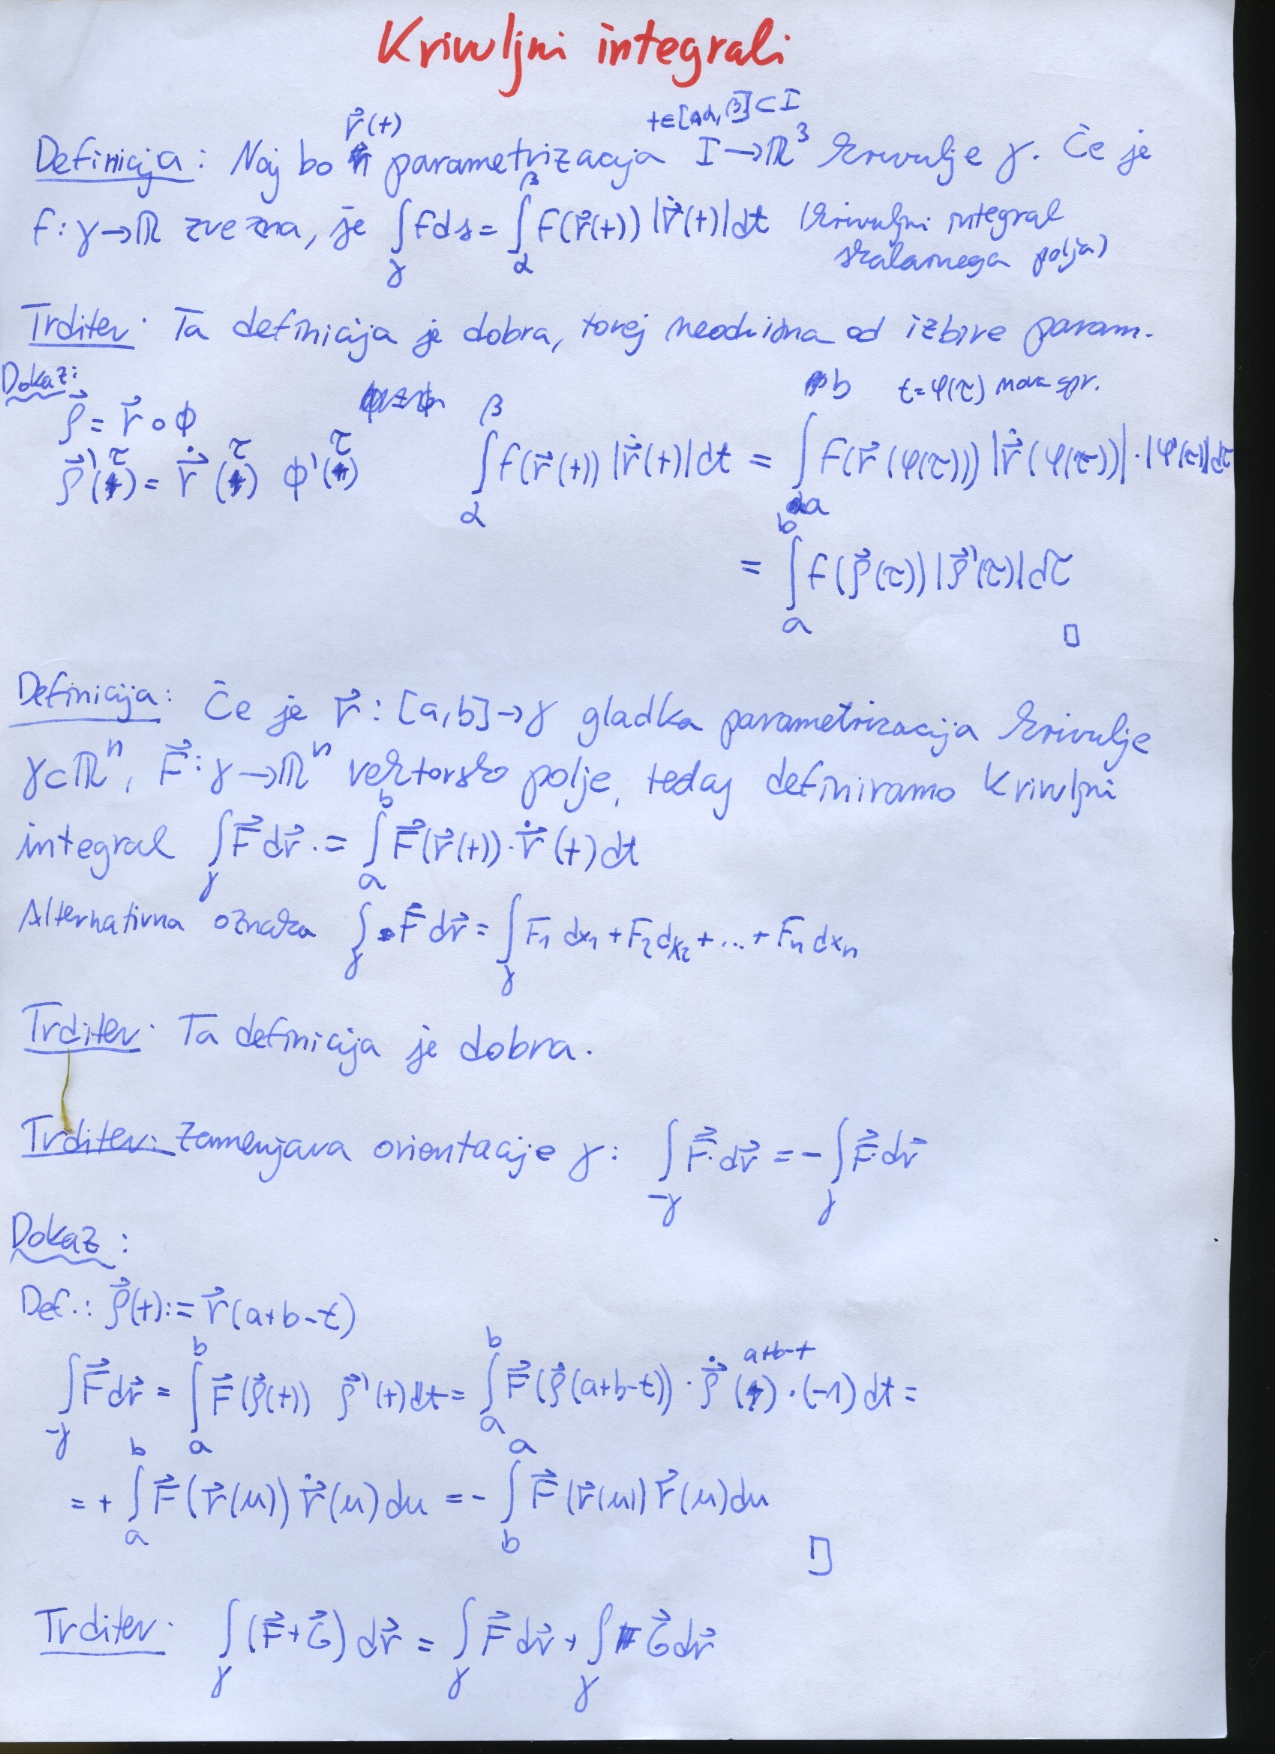 Krivuljni integrali
Definicija: Naj bo r⃗(t) parametrizacija I→ℝ³ krivulje γ. Če je t∈[α,β]⊂I
f: γ→ℝ zvezna, je ∫_γ f ds = ∫_α^β f(r⃗(t)) |ṙ⃗(t)| dt (krivuljni integral
skalarnega polja)
Trditev: Ta definicija je dobra, torej neodvisna od izbire param.
Dokaz:
t=φ(τ) nova spr.
ρ⃗ = r⃗ ∘ ϕ
ρ⃗'(τ) = ṙ⃗(τ) ϕ'(τ)
∫_α^β f(r⃗(t)) |ṙ⃗(t)| dt = ∫_a^b f(r⃗(φ(τ))) |ṙ⃗(φ(τ))|·|φ'(τ)| dτ
= ∫_a^b f(ρ⃗(τ)) |ρ⃗'(τ)| dτ
□
Definicija: Če je r⃗: [a,b]→γ gladka parametrizacija krivulje
γ⊂ℝⁿ, F⃗: γ→ℝⁿ vektorsko polje, tedaj definiramo krivuljni
integral ∫_γ F⃗ dr⃗ := ∫_a^b F⃗(r⃗(t))·ṙ⃗(t) dt
Alternativna oznaka ∫_γ F⃗ dr⃗ = ∫_γ F₁ dx₁ + F₂ dx₂ + ... + Fₙ dxₙ
Trditev: Ta definicija je dobra.
Trditev: Zamenjava orientacije γ: ∫_{-γ} F⃗ dr⃗ = - ∫_γ F⃗ dr⃗
Dokaz:
Def.: ρ⃗(t) := r⃗(a+b-t)
∫_{-γ} F⃗ dr⃗ = ∫_a^b F⃗(ρ⃗(t)) ρ⃗'(t) dt = ∫_a^b F⃗(ρ⃗(a+b-t))·ρ̇⃗(a+b-t)·(-1) dt =
= + ∫_a^b F⃗(r⃗(u)) ṙ⃗(u) du = - ∫_b^a F⃗(r⃗(u)) r⃗(u) du
□
Trditev: ∫_γ (F⃗+G⃗) dr⃗ = ∫_γ F⃗ dr⃗ + ∫_γ G⃗ dr⃗